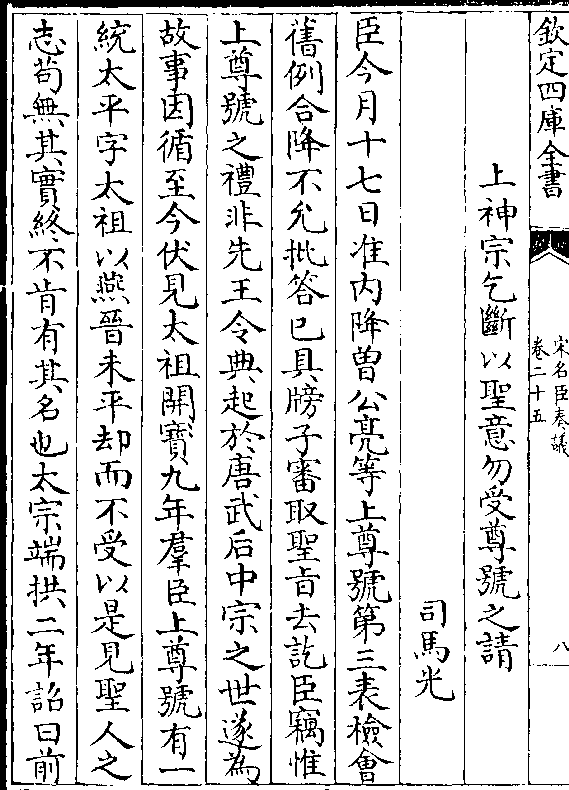 欽定四庫全書
宋名臣奏議
卷二十五
八
上神宗乞斷以聖意勿受尊號之請
司馬光
臣今月十七日准内降曽公亮等上尊號第三表檢會
舊例合降不允批答已具牓子審取聖旨去訖臣竊惟
上尊號之禮非先王令典起於唐武后中宗之世遂為
故事因循至今伏見太祖開寶九年羣臣上尊號有一
統太平字太祖以燕晉未平却而不受以是見聖人之
志苟無其實終不肯有其名也太宗端拱二年詔曰前